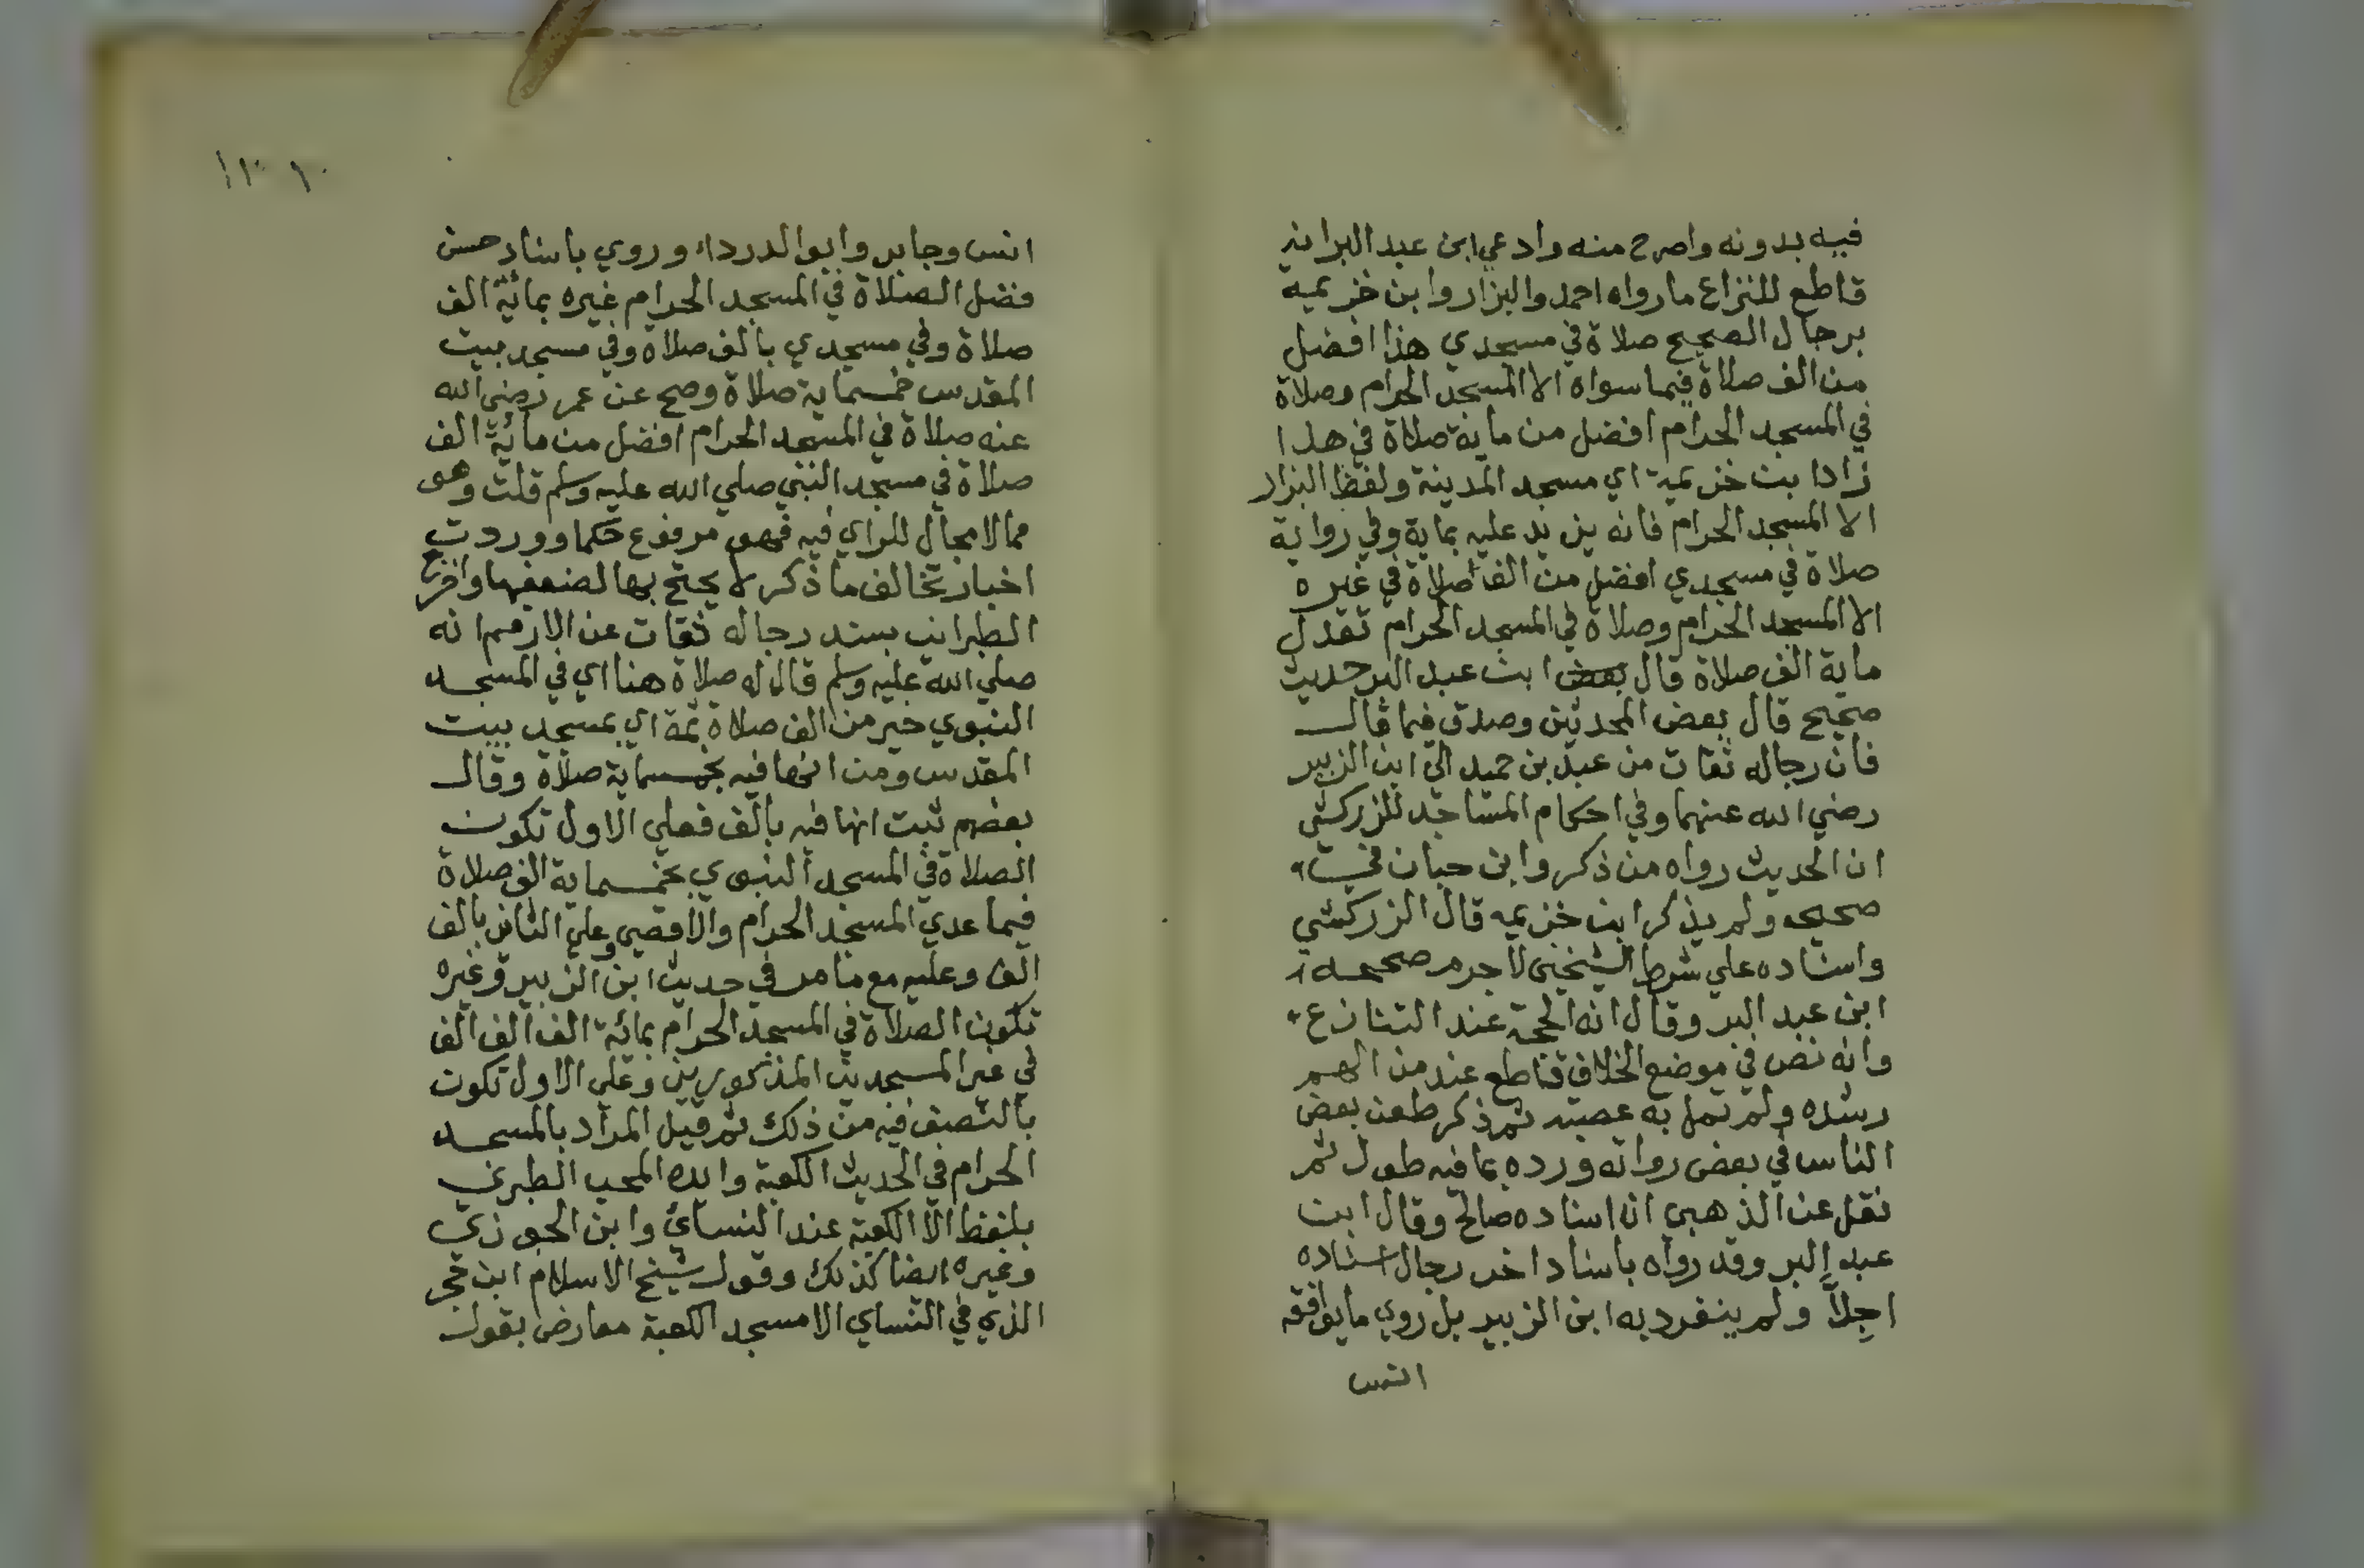 فيه بدونه واصرح منه وادعي ابن عبد البر انه
قاطع للنزاع ما رواه احمد والبزار وابن خزيمه
برجال الصحيح صلاة في مسجدي هذا افضل
من الف صلاة فيما سواه الا المسجد الحرام وصلاة
في المسجد الحرام افضل من ماية صلاة في هذا
زاد ابن خزيمة اي مسجد المدينة ولفظ البزار
الا المسجد الحرام فانه يزيد عليه بماية وفي رواية
صلاة في مسجدي افضل من الف صلاة في غيره
الا المسجد الحرام وصلاة في المسجد الحرام تعدل
ماية الف صلاة قال بعض ابن عبد البر حديث
صحيح قال بعض المحدثين وصدق فيما قال
فان رجاله ثقات من عبد بن حميد الي ابن الزبير
رضي الله عنهما وفي احكام المساجد للزركشي
ان الحديث رواه من ذكر وابن حبان في
صحيحه ولم يذكر ابن خزيمه قال الزركشي
واسناده علي شرط الشيخين لا جرم صححه
ابن عبد البر وقال انه الحجة عند التنازع
وانه نص في موضع الخلاف قاطع عند من الهم
رشده ولم تمل به عصبته ثم ذكر طعن بعض
الناس في بعض رواته ورده بما فيه طول ثم
نقل عن الذهبي ان اسناده صالح وقال ابن
عبد البر وقد رواه باسناد اخر رجال اسناده
اجلاّ ولم ينفرد به ابن الزبير بل روي ما يوافقه
انس
١٠
انس وجابر وابو الدرداء وروي باسناد حسن
فضل الصلاة في المسجد الحرام غيره بمائة الف
صلاة وفي مسجدي بالف صلاة وفي مسجد بيت
المقدس خمسماية صلاة وصح عن عمر رضي الله
عنه صلاة في المسجد الحرام افضل من مائة الف
صلاة في مسجد النبي صلي الله عليه وسلم قلت وهو
مما لا مجال للراي فيه فهو مرفوع حكما ووردت
اخبار تخالف ما ذكر لا يحتج بها لضعفها واخرج
الطبراني بسند رجاله ثقات عن الارقم انه
صلي الله عليه وسلم قال له صلاة هنا اي في المسجد
النبوي خير من الف صلاة ثمة اي بمسجد بيت
المقدس ومن انها فيه بخمسماية صلاة وقال
بعضهم ثبت انها فيه بالف فعلي الاول تكون
الصلاة في المسجد النبوي بخمسماية الف صلاة
فيما عدي المسجد الحرام والاقصي وعلي الثاني بالف
الف وعليه مع ما مر في حديث ابن الزبير وغيره
تكون الصلاة في المسجد الحرام بمائة الف الف الف
في غير المسجدين المذكورين وعلي الاول تكون
بالنصف فيه من ذلك ثم قيل المراد بالمسجد
الحرام في الحديث الكعبة وايده المحب الطبري
بلفظ الا الكعبة عند النسائ وابن الجوزي
وغيره ايضا كذلك وقول شيخ الاسلام ابن حجر
الذي في النساي الا مسجد الكعبة معارض بقول